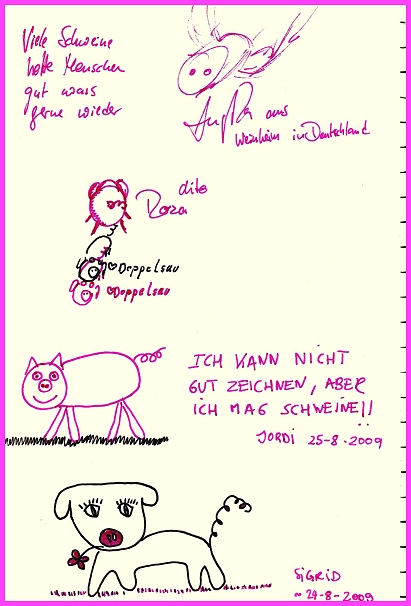 Viele Schweine
nette Menschen
gut wars
gerne wieder
aus
Weinheim in Deutschland
dito
Roza
♡Doppelsau
♡Doppelsau
ICH KANN NICHT
GUT ZEICHNEN, ABER
ICH MAG SCHWEINE!!
JORDI 25-8-2009
SiGRiD
24-8-2009